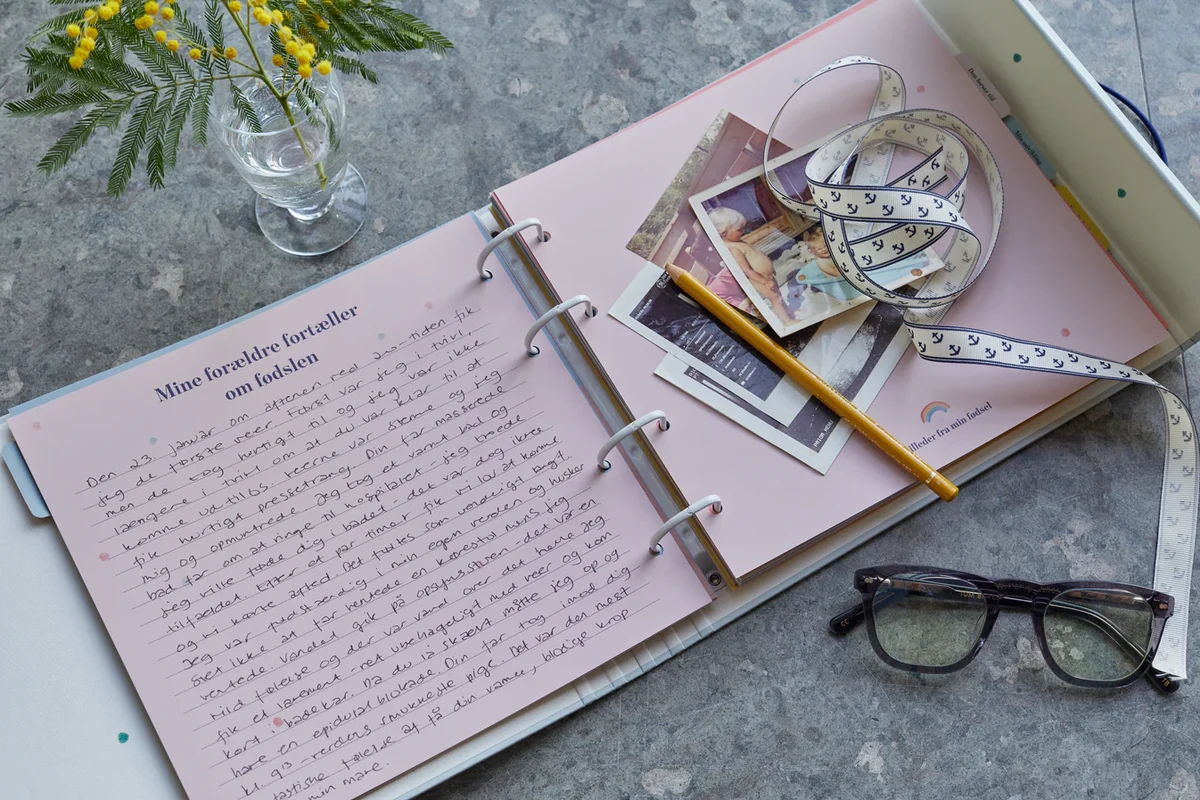 Mine forældre fortæller
om fødslen
Den 23. januar om aftenen ved 20-tiden fik
jeg de første veer. Først var jeg i tvivl,
men de tog hurtigt til og jeg var ikke
længere i tvivl om at du var klar til at
komme ud til os. Veerne var stærke og jeg
fik hurtigt pressetrang. Din far masserede
mig og opmuntrede. Jeg tog et varmt bad og
bad far om at ringe til hospitalet - jeg troede
jeg ville føde dig i badet - det var dog ikke
tilfældet. Efter et par timer fik vi lov at komme
og vi kørte afsted. Det føltes som uendeligt langt.
Jeg var fuldstændig i min egen verden og husker
slet ikke at far hentede en kørestol mens jeg
ventede. Vandet gik på - det var en
vild følelse og der var vand over det hele. Jeg
fik et lavement - ret ubehageligt med veer og kom
kort i badekar. Da du lå skævt måtte jeg op og
have en epidural blokade. Din far tog imod dig
kl. 9.13 - verdens smukkeste pige. Det var den mest
tastiske følelse at få din varme, blodige krop
min mave.
lleder fra min fødsel